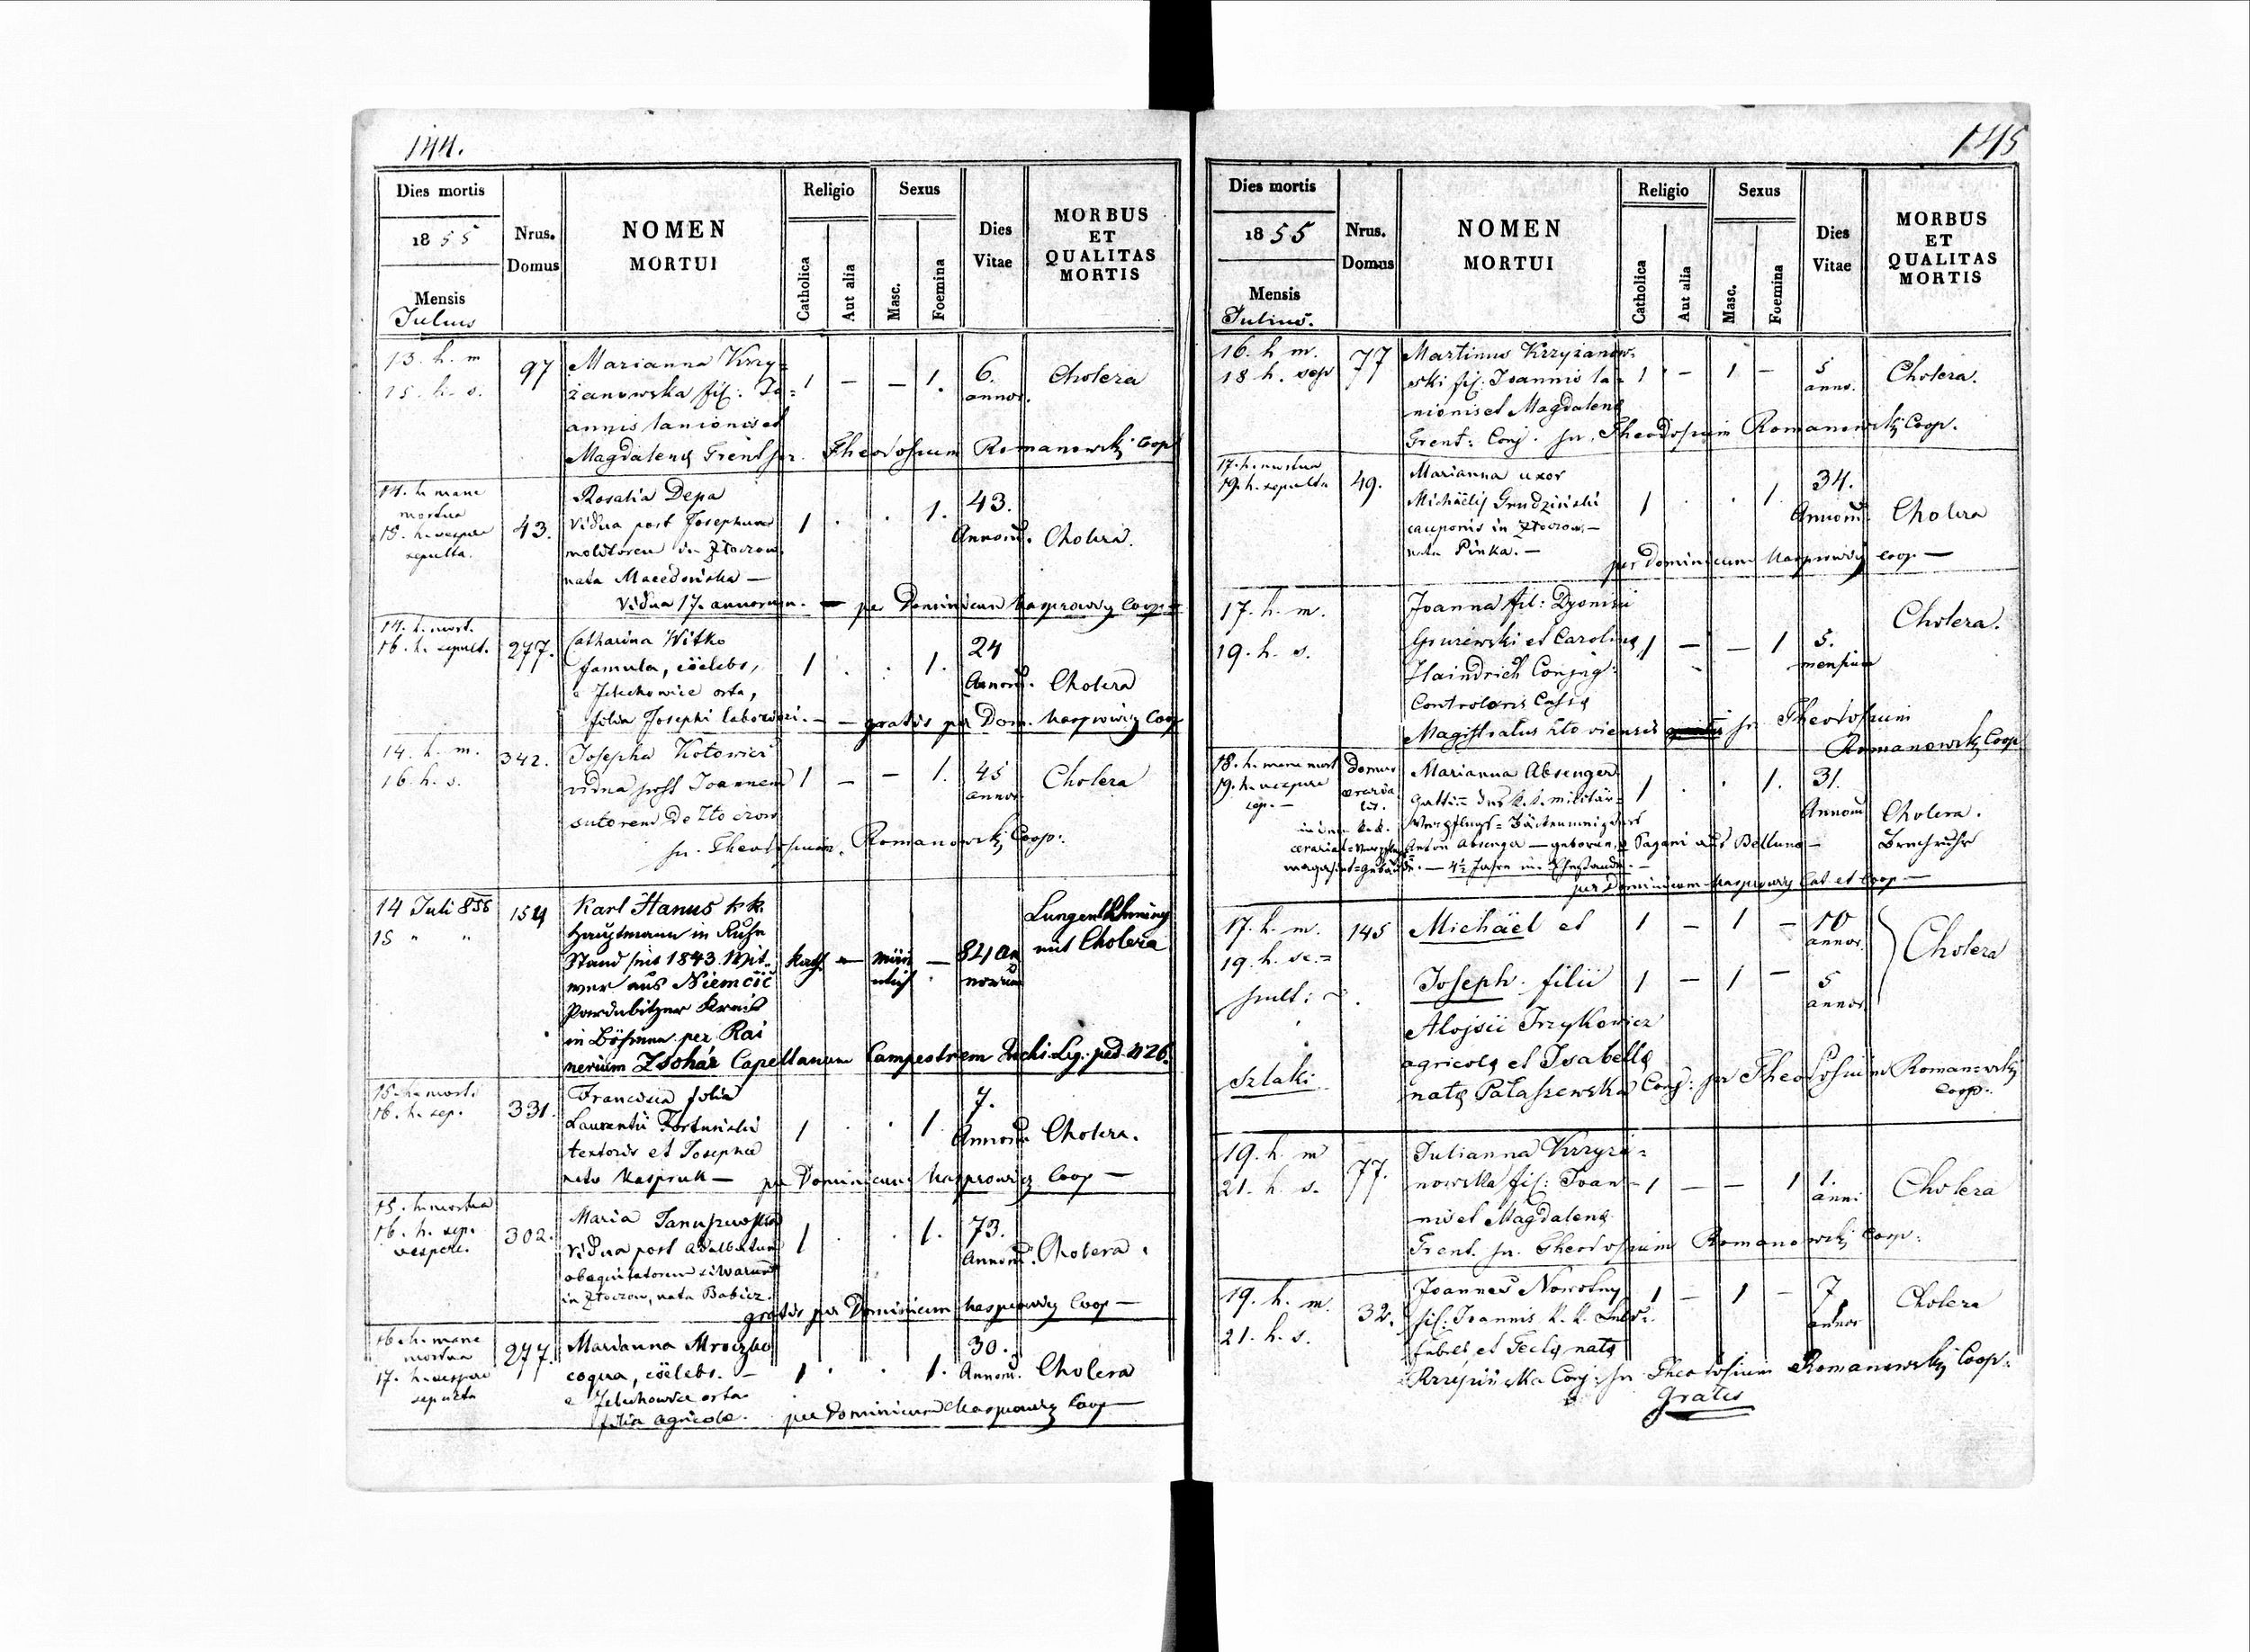 144.
Dies mortis
1855
Mensis
Julius
Nrus.
Domus
NOMEN
MORTUI
Religio
Catholica
Aut alia
Sexus
Masc.
Foemina
Dies
Vitae
MORBUS
ET
QUALITAS
MORTIS
13. h. m
15. h. s.
97
Marianna Krzy=
żanowska fil: Jo=
annis lanionis et
Magdalenę Trent per Theodosium Romanowski Coop
1 — — 1.
6.
annor.
Cholera
14. h. mane
mortua
15. h. vespere
sepulta.
43.
Rosalia Depa
vidua post Josephum
molitorem in Złoczow.
nata Macedońska —
vidua 17. annorum. — per Dominicum Kasprowicz Coop —
1 . . 1.
43.
Annorum.
Cholera.
14. h. mort.
16. h. sepult.
277.
Catharina Witko
famula, cölebs,
e Jelechowice orta,
filia Josephi laboriori. — gratis per Dom. Kasprowicz Coop
1 . . 1.
24
Annorum.
Cholera
14. h. m.
16. h. s.
342.
Josepha Kotowicz
vidua post Joannem
sutorem de Złoczow
per Theodosium Romanowski Coop:
1 — — 1.
45
annor.
Cholera
14 Juli 855
15 " "
154
Karl Hanus k k.
Hauptmann in Ruhe
Stand seit 1843. Wit=
wer aus Niemčič
Pardubitzer Kreis
in Böhmen per Rai
nerium Zsohár Capellanum Campestrem Leg. ped. N 26.
kath. — män
nlich —
82 an
norum
mit Cholera
15. h. mort.
16. h. sep.
331.
Francisca filia
Laurentii Fortuński
textoris et Josepha
nata Kaspruk — per Dominicum Kasprowicz Coop —
1 . . 1.
7.
Annorum
Cholera.
15. h. mortua
16. h. sep.
vespere.
302.
Maria Januszewska
vidua post Adalbertum
obequitatorem silvarum
in Złoczow, nata Babicz.
gratis per Dominicum Kasprowicz Coop —
1 . . 1.
73.
Annorum.
Cholera.
16. h. mane
mortua
17. h. vespere
sepulta
277.
Marianna Mroczko
coqua, cölebs. —
e Jelechowice orta
filia agricolæ. per Dominicum Kasprowicz Coop —
1 . . 1.
30.
Annorum.
Cholera
145
Dies mortis
1855
Mensis
Julius.
Nrus.
Domus
NOMEN
MORTUI
Religio
Catholica
Aut alia
Sexus
Masc.
Foemina
Dies
Vitae
MORBUS
ET
QUALITAS
MORTIS
16. h. m.
18 h. sep
77
Martinus Krzyżanow=
ski fil. Joannis la=
nionis et Magdalenę
Trent: Conj. per Theodosium Romanowski Coop.
1 — 1 —
5
anno.
Cholera.
17. h. mortua
19. h. sepulta
49.
Marianna uxor
Michäelis Grudziński
cauponis in Złoczow. —
nata Pinka. —
per Dominicum Kasprowicz coop —
1 . . 1.
34.
Annorum.
Cholera
17. h. m.
19. h. s.
Joanna fil: Dyonisii
et Carolinę
Haindrich Conjug:
Controloris Cassę
Magistratus Złoczoviensis per Theodosium
Romanowski Coop
1 — — 1
5.
mensium
Cholera.
18. h. mane mort
19. h. vespere
sep. —
domus
œraria
lis.
Marianna Absenger
Gattin des k. k. militär=
Verpflegs=Bäckenmeisters
Anton Absenger — geboren Pagani aus Belluno —
magazins=Gebäude. — 4½ Jahre im Ehestande —
per Dominicum Kasprowicz Cat. et Coop —
1 . . 1.
31.
Annorum
Cholera.
Brechruhr
17. h. m.
19. h. se=
pult:
Szlaki
145
Michäel et
1 — 1 —
10
annor.
Joseph filii
1 — 1 —
5
annor.
Cholera
Aloysii Irzykowicz
agricolę et Isabellę
natę Pałaszewska Conj: per Theodosium Romanowski
Coop.
19. h. m
21. h. s.
77.
Julianna Krzyża=
nowska fil: Joan=
nis et Magdalenę
Trent. per Theodosium Romanowski Coop:
1 — — 1
1.
anni
Cholera
19. h. m.
21. h. s.
32.
Joannes Nowotny
fil: Joannis k. k.
et Teclę natę
Conj: per Theodosium Romanowski Coop:
Gratis
1 — 1 —
7
annor
Cholera